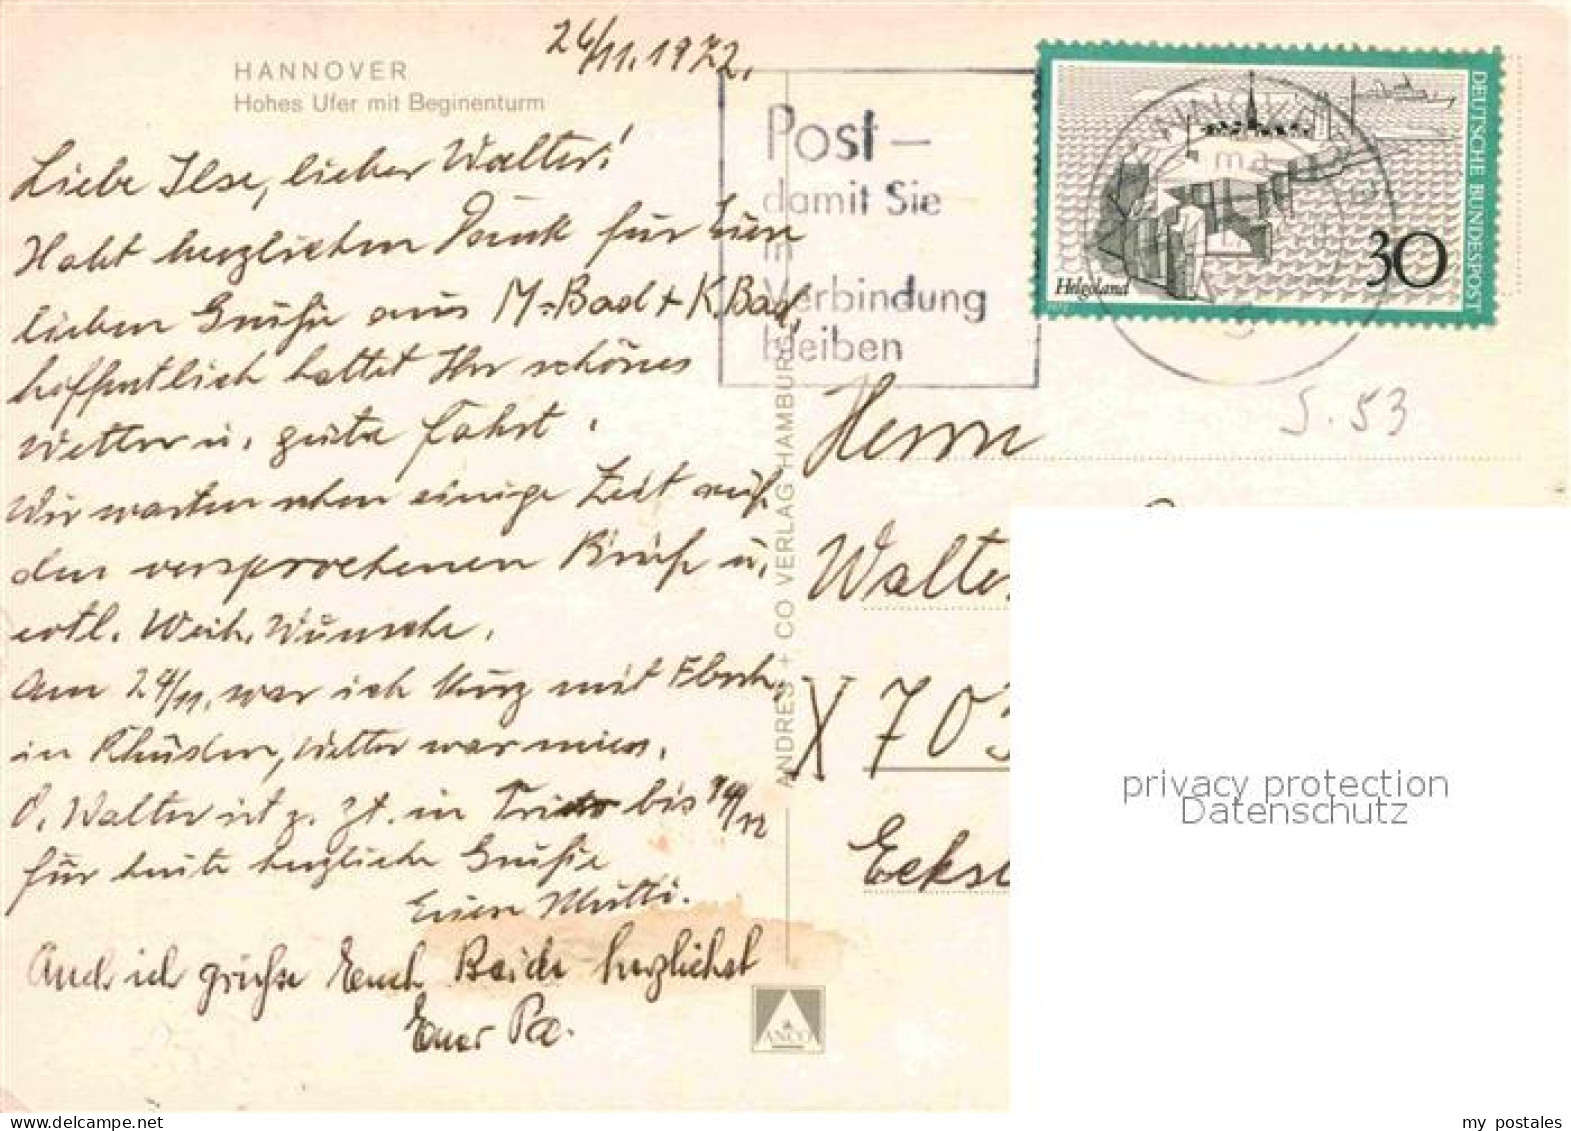 26/11.1972.
HANNOVER
Hohes Ufer mit Beginenturm
Liebe Ilse, lieber Walter!
Habt herzlichen Dank für Euren
lieben Grüße aus M-Bad + K.Bad,
hoffentlich hattet Ihr schönes
Wetter u. gute Fahrt.
Wir warten schon einige Zeit auf
den versprochenen Brief u.
evtl. Weih. Wünsche.
Am 24/11. war ich kurz mit
in Wetter war mies.
O. Walter ist z. Zt. in bis
für heute herzliche Grüße
Euere Mutti.
Auch ich grüße Euch Beide herzlichst
Euer Pa.
Post –
damit Sie
in
Verbindung
bleiben
DEUTSCHE BUNDESPOST
Helgoland
30
5.53
Herrn
Walter
X 703
Ecks
ANDRES + CO VERLAG HAMBURG
ANCO
privacy protection
Datenschutz
my-postales.com
my_postales